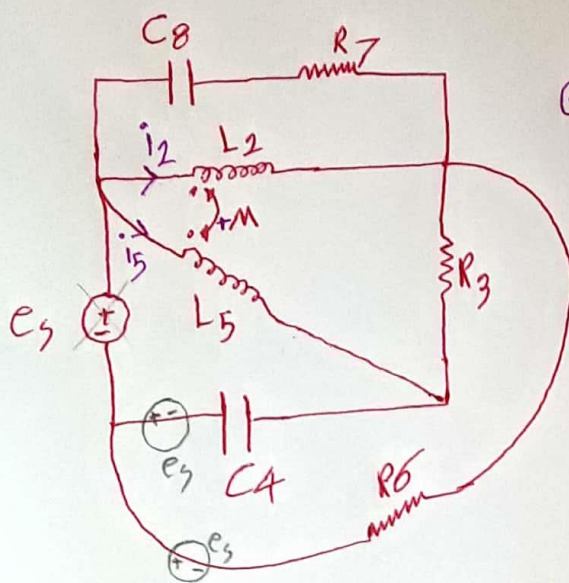 C8
R7
i2
L2
+M
i5
L5
R3
es
+
-
+ -
es
C4
R6
es
+ -